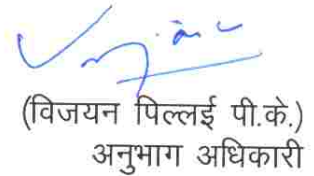 (विजयन पिल्लई पी.के.)
अनुभाग अधिकारी